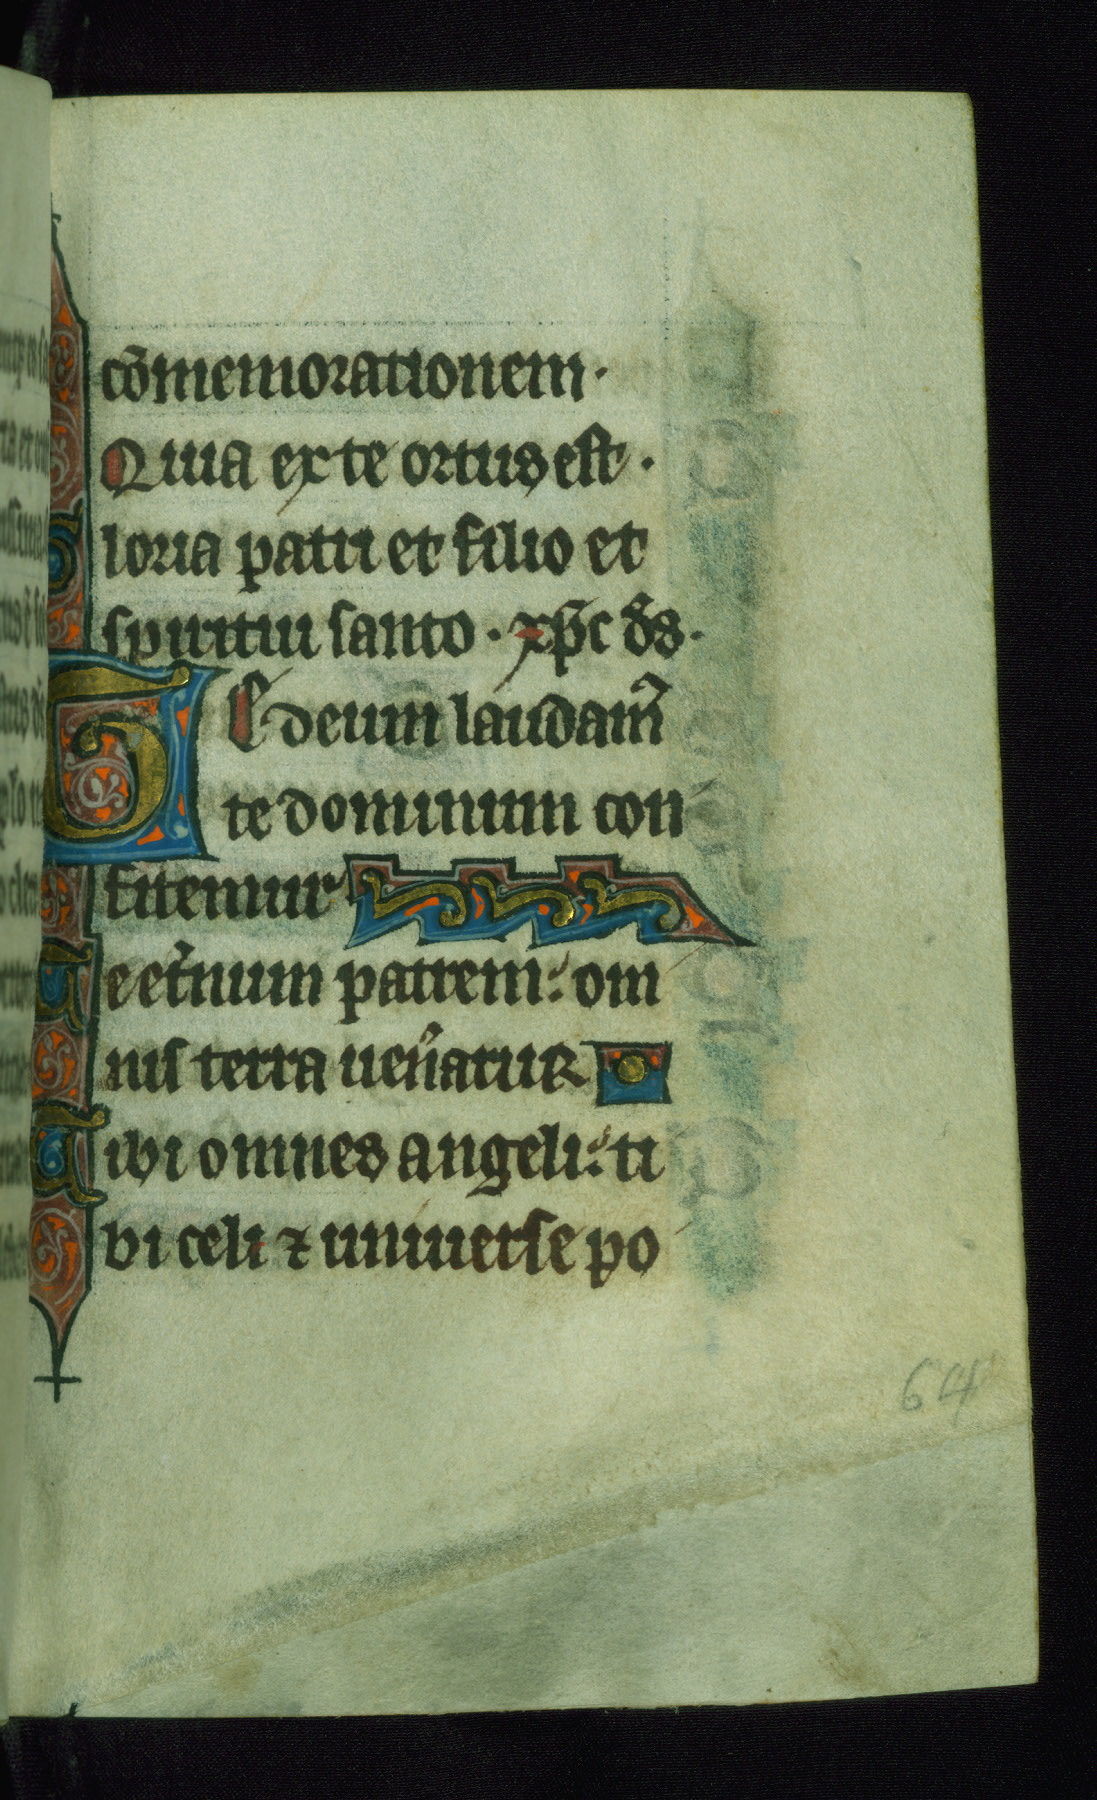 cõmemorationem·
Quia ex te ortus est·
Gloria patri et filio et
spiritui santo· xp̄c d̄s·
Te deum laudam᷑
te dominum con
fitemur
Te et᷑num patrem: om
nis terra uen᷑atur
Tibi omnes angeli: ti
bi celi ⁊ uniuerse po
64